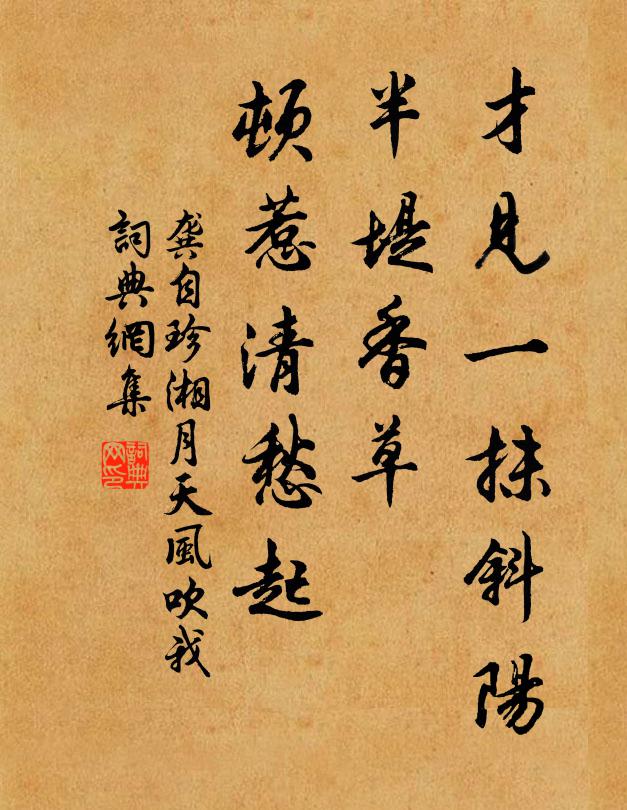 才見一抹斜陽
半堤香草
頓惹清愁起
龔自珍湘月天風吹我
詞典網集
詞典网印